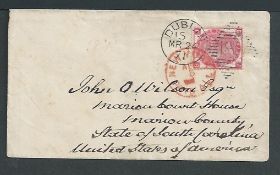 DUBLIN
15
MR 24
71
NEW
John O Wilson Esqr
Marion Court House
Marion County
State of South Carolina
United States of America